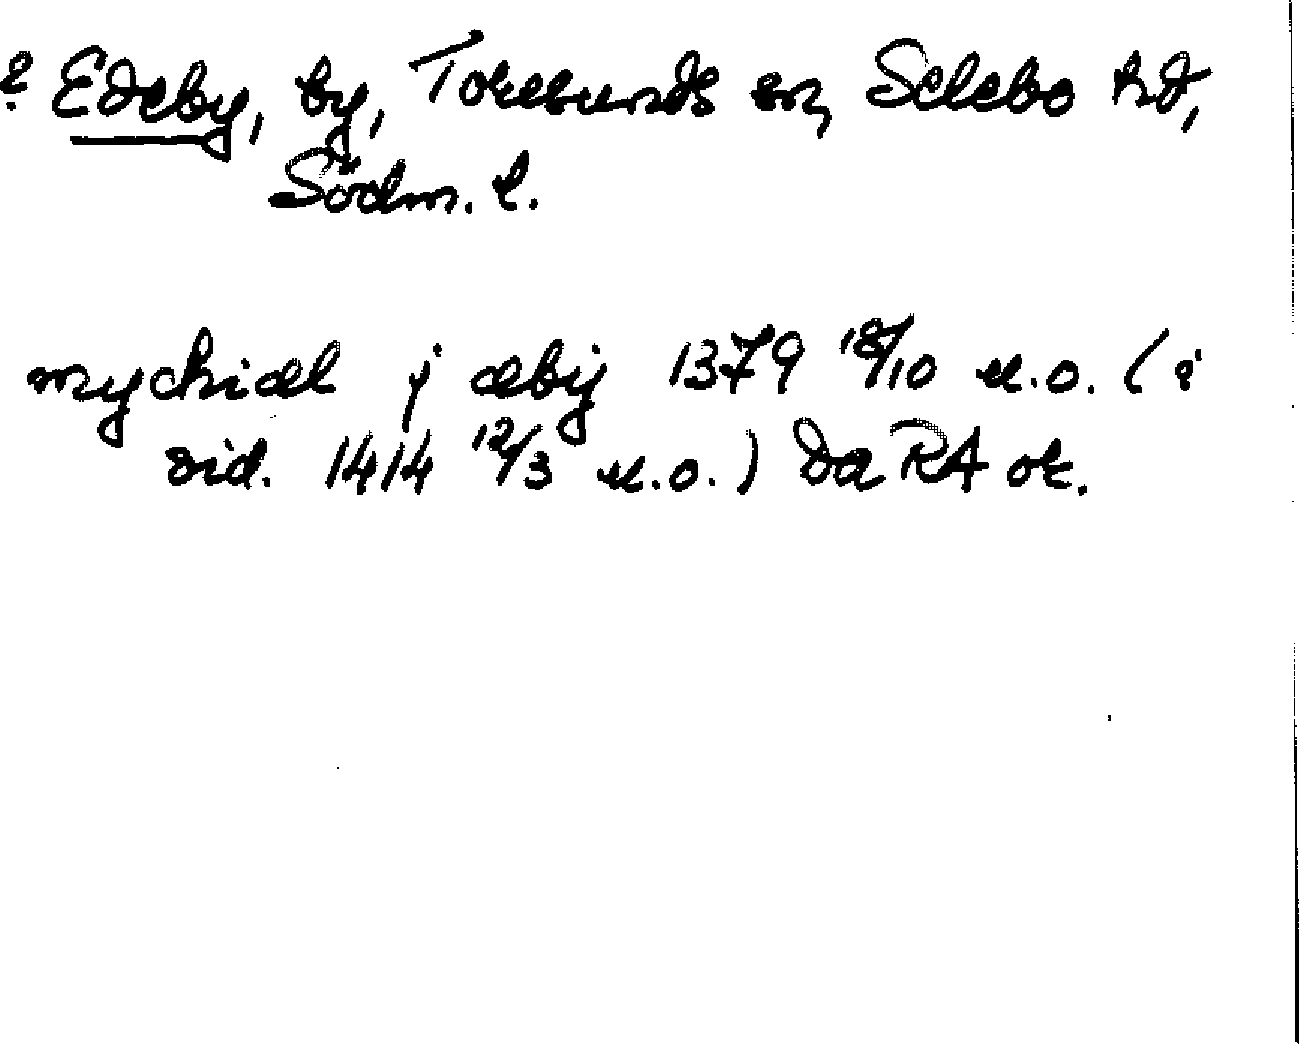 ? Edeby, by, Toresunds sn, Selebo hd,
Södm. l.
mychiæl j æby 1379 18/10 u.o. (i
vid. 1414 12/3 u.o.) Da RA or.